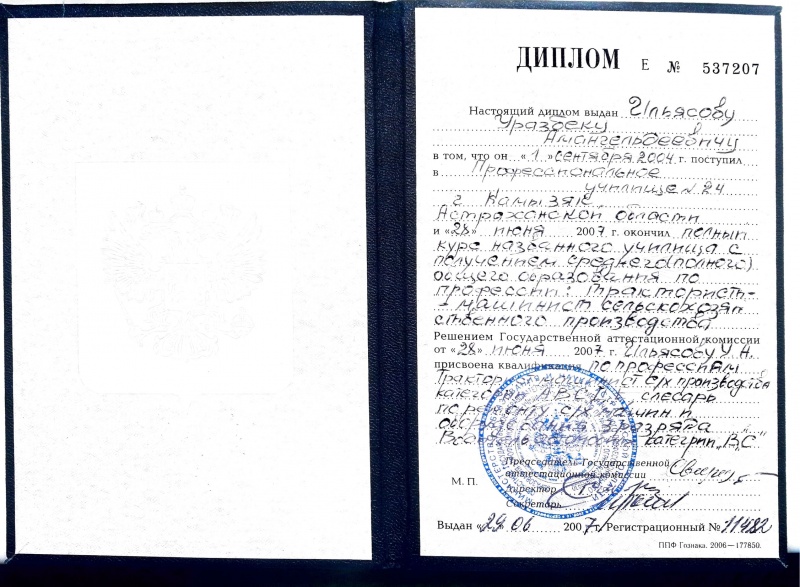 ДИПЛОМ Е № 537207
Настоящий диплом выдан Ильясову
Уразбеку
Амангельдеевичу
в том, что он «1» сентября 2004 г. поступил
в Профессиональное
училище № 24
г. Камызяк
Астраханской области
и «28» июня 2007 г. окончил полный
курс названного училища с
получением среднего (полного)
общего образования по
профессии: Тракторист-
- машинист сельскохозяй
ственного производства
Решением Государственной аттестационной комиссии
от «28» июня 2007 г. Ильясову У. А.
присвоена квалификация по профессиям
Тракторист-машинист с/х производства
категории слесарь
по ремонту с/х машин и
оборудования 3 разряда
Водитель автомобиля категрии „В,С"
Председатель Государственной
аттестационной комиссии
М. П.
Директор
Секретарь
Выдан «29» 06 2007 г. Регистрационный № 11482
ППФ Гознака. 2006—177850.